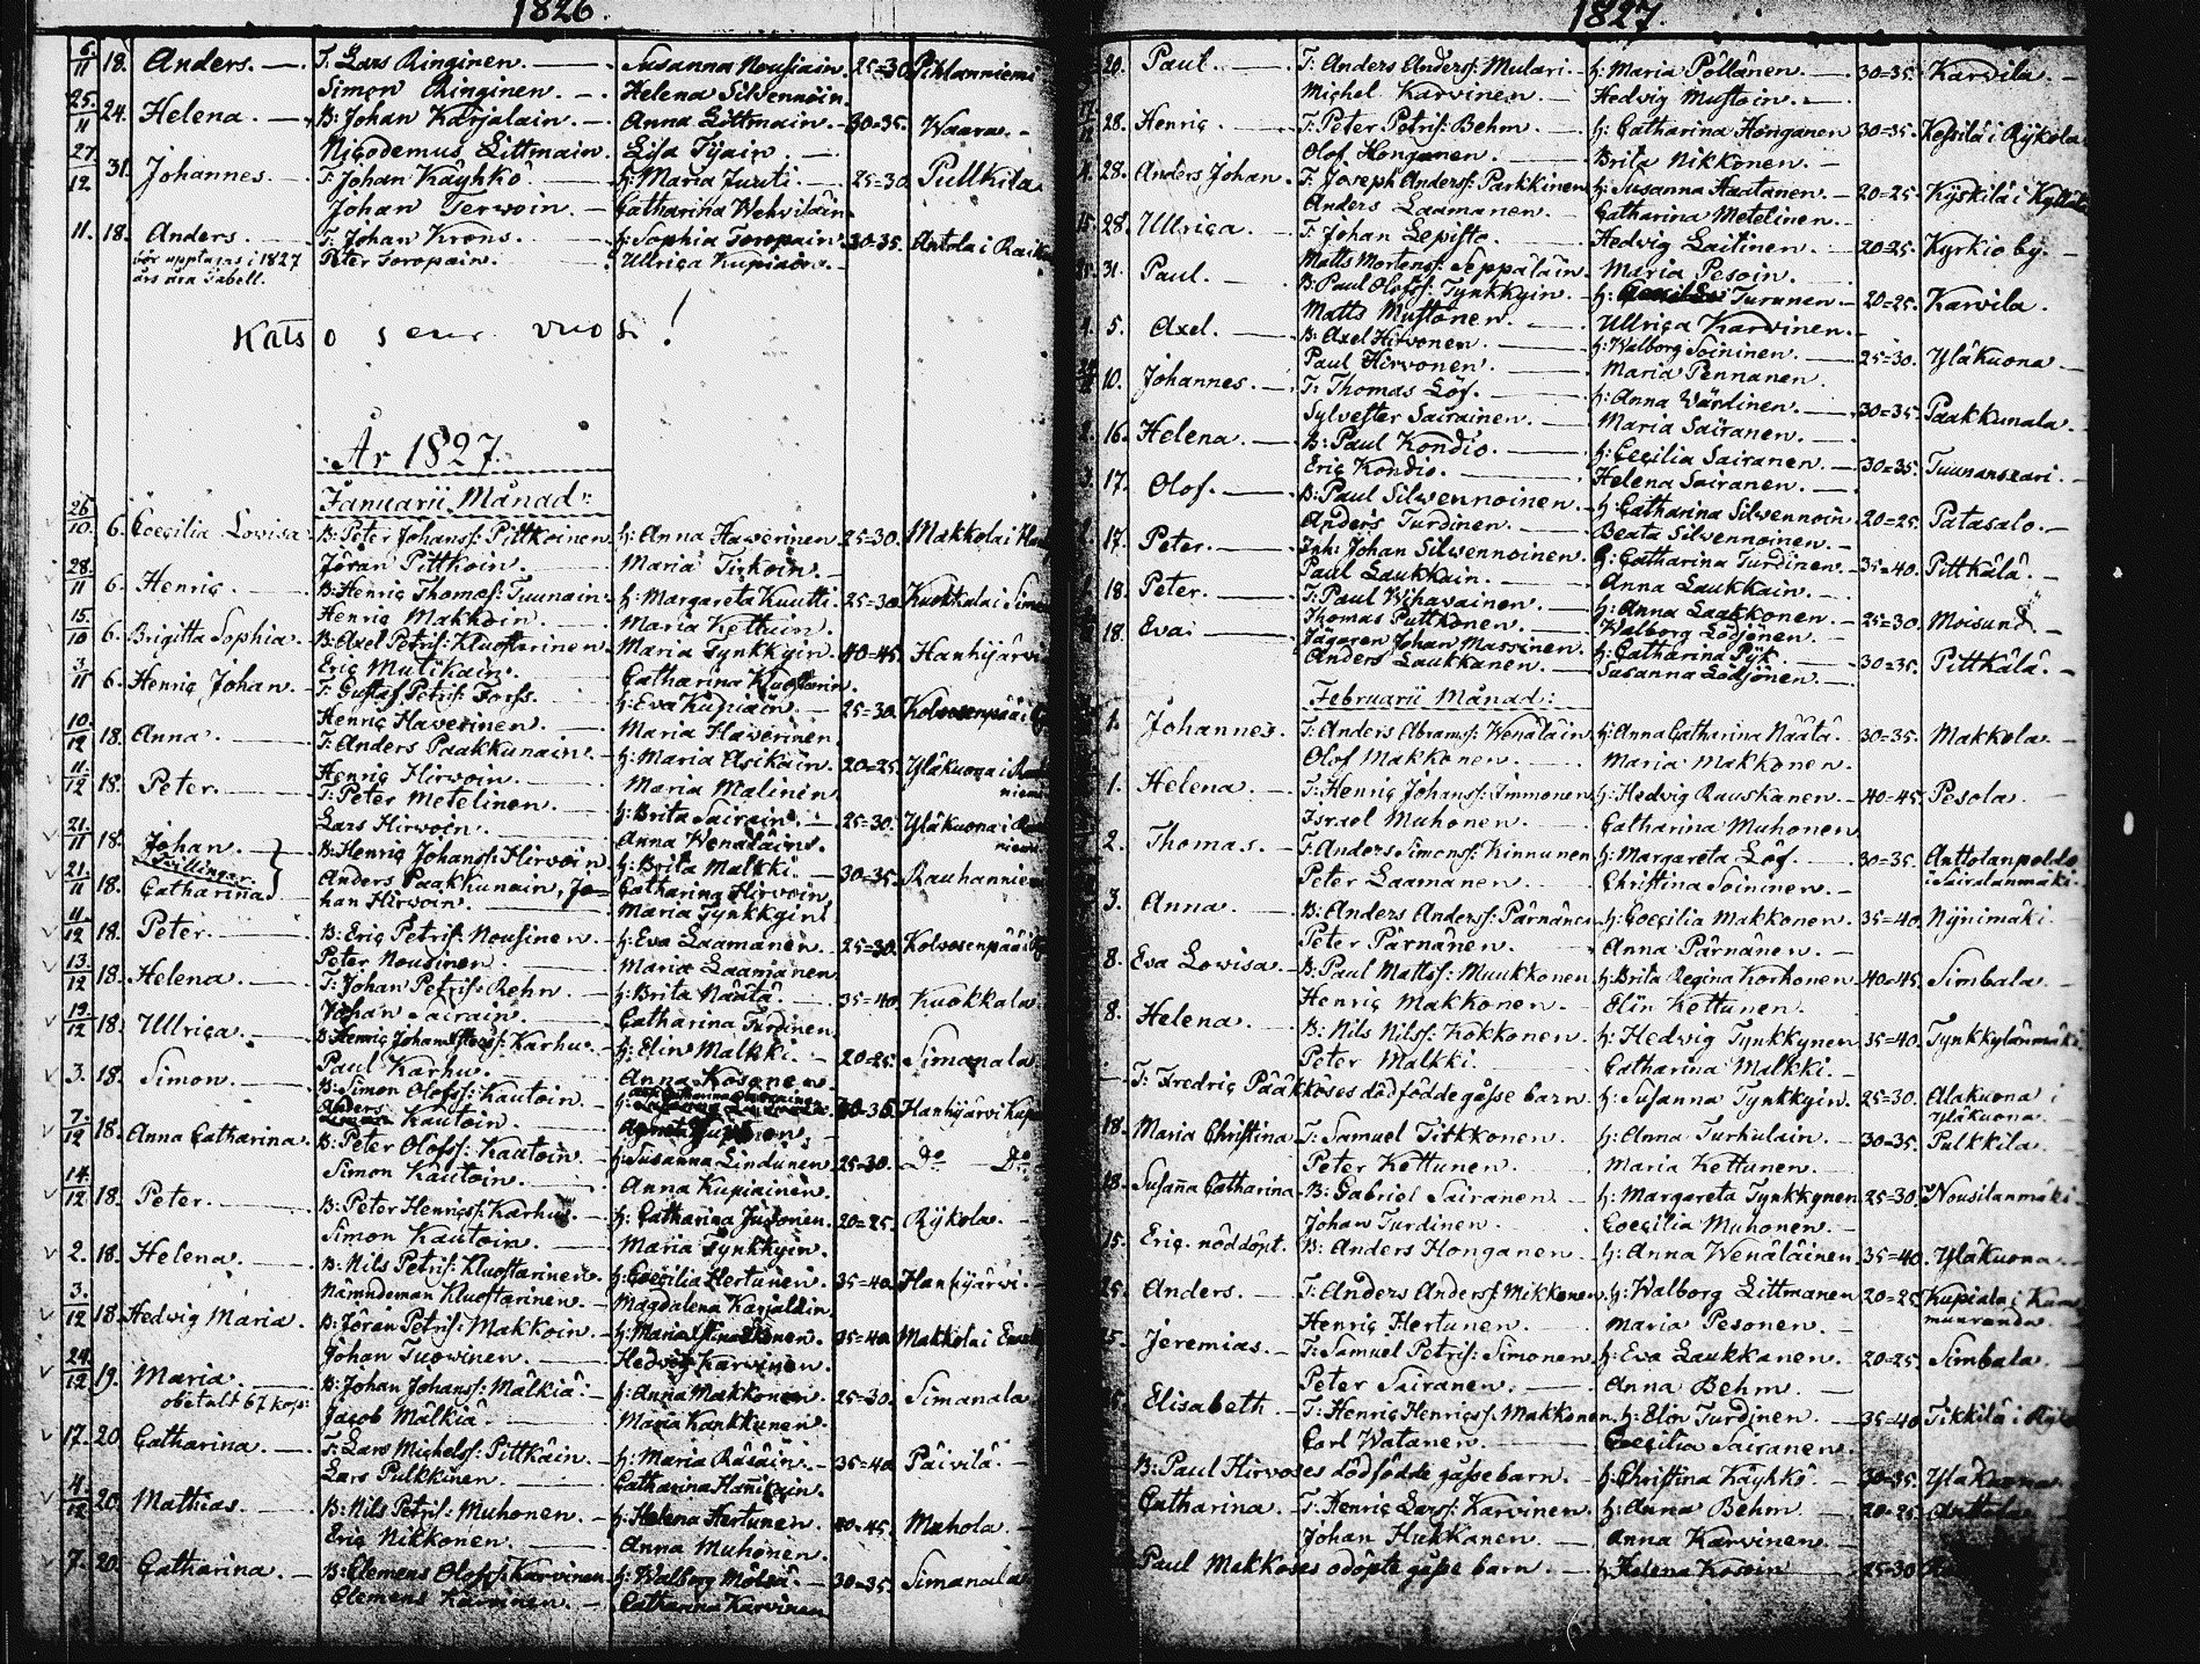 1826.
6./11 18. Anders. — T. Lars Ringinen. — Susanna Nousiain. 25=30. Pihlanniemi
Simon Ringinen. — Helena Silvennoin.
25./11 24. Helena. — B: Johan Karjalain. — Anna Littmain. 30=35. Waara. -
Nicodemus Littmain. Lisa Tijain. —
27./12 31. Johannes. — T: Johan Käyhkö. — h: Maria Juuti. — 25=30. Pullkila
Johan Terwoin. — Catharina Wehviläin.
11. 18. Anders. — T: Johan Krons. — h: Sophia Toropain. 30=35. Antola i Raik
bör upptagas i 1827 Peter Toropain. — Ullrica Kupiain. -
års Tabell.
Katso seur. vuosi!
År 1827.
Januarii Månad:
26/10. 6. Coecilia Lovisa B: Peter Johanss: Pittkoinen h: Anna Haverinen 25=30. Makkola i
Jöran Pittkoin. — Maria Tiikoin. -
28./11 6. Henric. — B: Henric Thomass: Tuunain. h: Margareta Kuutti. 25=30. Kuokkala i
Henric Makkoin. — Maria Kettuin.
15./10 6. Brigitta Sophia. B: Axel Petris: Kluostarinen. Maria Tynkkyin. 40=45. Hanhijärvi
Eric Mutikain. Catharina Kluostarin.
3./11 6. Henric Johan. — T: Gustaf Petris: Forss. h: Eva Kupiain. — 25=30. Kolvosenpää i
Henric Haverinen. — Maria Haverinen.
10./12 18. Anna. — T: Anders Paakkunain. — h: Maria Asikain. 20=25. Yläkuona i
Henric Hirvoin. — Maria Malinin.
11./12 18. Peter. — T: Peter Metelinen. — h: Brita Sairain. — 25=30. Yläkuona i
Lars Hirvoin. — Anna Wenäläin.
21./11 18. Johan. — B: Henric Johanss: Hirvoin h: Brita Malkki. — 30=35. Rauhanniemi
Tvillingar.
21./11 18. Catharina Anders Paakkunain, Jo= Catharina Hirvoin,
han Hirvoin. — Maria Tynkkyin.
11./12 18. Peter. — B: Eric Petris: Nousinen. — h: Eva Laamanen. 25=30. Kolvosenpää i
Peter Nousinen — Maria Laamanen
13./12 18. Helena. — T: Johan Petris: Behn. — h: Brita Näätä. — 35=40. Kuokkala.
Johan Sairain. — Catharina Turdinen.
19./12 18. Ullrica. — B: Henric Johan Karhu. — h: Elin Malkki. — 20=25. Simanala
Paul Karhu. — Anna Kosonen.
3. 18. Simon. — B: Simon Olofss: Kautoin. — Hanhijärvi
Anders Kautoin. —
7./12 18. Anna Catharina. B: Peter Olofss: Kautoin. — h: Susanna Lindunen 25=30. Do — Do
Simon Kautoin. — Anna Kupiainen.
14./12 18. Peter. — B: Peter Henricss: Karhu. — h: Catharina Jusonen. 20=25. Rykola. -
Simon Kautoin. — Maria Tynkkyin.
2. 18. Helena. — B: Nils Petris: Kluostarinen. h: Coecilia Hertunen. 35=40. Hanhijärvi. -
Nämndeman Kluostarinen. — Magdalena Karjalain.
3./12 18. Hedvig Maria. B: Jöran Petris: Makkoin. — h: Maria 35=40. Makkola i
Johan Tuovinen. — Hedvig Karvinen.
24./12 19. Maria. — B: Johan Johanss: Mälkiä: — h: Anna Makkonen. 25=30. Simanala
obetalt 67 kop: Jacob Mälkiä. — Maria Kankkunen.
17. 20 Catharina. — T: Lars Michelss: Pittkäin. — h: Maria Räsäin. — 35=40 Päivilä. -
Lars Pulkkinen. — Catharina Hänikäin.
4./12 20. Mathias. — B: Nils Petris: Muhonen. — h: Helena Hertunen. 40=45. Muhola. -
Eric Nikkonen. — Anna Muhonen.
7. 20. Catharina. — B: Clemens Olofss: Karvinen h: Walborg Mölsä. — 30=35. Simanala
Clemens Karvinen. — Catharina Karvinen
1827.
20. Paul. — T: Anders Anderss: Mulari. — h: Maria Pöllänen. — 30=35. Karvila. -
Michel Karvinen. — Hedvig Mustoin. —
28. Henric. — T: Peter Petris: Behm. — h: Catharina Honganen 30=35. Kessilä i Rykola
Olof Honganen. — Brita Nikkonen. —
4. 28. Anders Johan. T: Joseph Anderss: Parkkinen h: Susanna Haatanen. — 20=25. Kyskilä i
Anders Laamanen. — Catharina Metelinen. -
15. 28. Ullrica. — T: Johan Lepisto. — Hedvig Laitinen. — 20=25. Kyrkio by. -
Matts Mortenss: Seppäläin. Maria Pesoin.
31. Paul. — B: Paul Olofss: Tynkkyin. — h: Turunen. — 20=25. Karvila.
Matts Mustonen. — Ullrica Karvinen. -
4. 5. Axel. — B: Axel Hirvonen. — h: Walborg Soininen. — 25=30. Yläkuona. -
Paul Hirvonen. — Maria Pennanen.
10. Johannes. — T: Thomas Löf. — h: Anna Wärdinen. — 30=35. Paakkunala. -
Sylvester Sairainen. — Maria Sairanen. —
16. Helena. — B: Paul Kondio. — h: Cecilia Sairanen. — 30=35. Tuunansaari. -
Eric Kondio. — Helena Sairanen. —
17. Olof. — B: Paul Silvennoinen. — h: Catharina Silvennoin 20=25. Patasalo. -
Anders Turdinen. — Beata Silvennoinen. —
17. Peter. — Inh: Johan Silvennoinen. h: Catharina Turdinen. — 35=40. Pittkälä. -
Paul Laukkain. — Anna Laukkain. —
18. Peter. — T: Paul Wihavainen. — h: Anna Laakkonen. — 25=30. Moisund. -
Thomas Puttkonen. — Walborg Lödjönen. —
18. Eva: — Jägaren Johan Massinen. h: Catharina Pyk. — 30=35. Pittkälä. -
Anders Laukkanen. — Susanna Lödjönen. —
Februarii Månad:
1. Johannes. T: Anders Abramss: Wenäläin. h: Anna Catharina Näätä. 30=35. Makkola. -
Olof Makkonen. — Maria Makkonen.
1. Helena. — T: Henric Johanss: Immonen. h: Hedvig Rauskanen. — 40=45. Pesola. -
Israel Muhonen. — Catharina Muhonen
2. Thomas. — T: Anders Simonss: Kinnunen h: Margareta Löf. — 30=35. Anttolanpeldo
Peter Laamanen. — Christina Soininen. — i Sairalanmäki.
3. Anna. — B: Anders Anderss: Pärnänen h: Coecilia Makkonen. 35=40. Nynimäki.
Peter Pärnänen. — Anna Pärnänen. —
8. Eva Lovisa. — B: Paul Mattss: Muukkonen h: Brita Regina Korhonen 40=45. Simbala. -
Henric Makkonen. — Elin Kettunen.
8. Helena. — B: Nils Nilss: Kokkonen. h: Hedvig Tynkkynen 35=40. Tynkkylänmäki.
Peter Malkki. — Catharina Malkki. —
— T: Fredric Pääkköses dödfödde gåsse barn. h: Susanna Tynkkyin. 25=30. Alakuona i
Yläkuona. -
18. Maria Christina T: Samuel Tiikkonen. — h: Anna Turhulain. — 30=35. Pulkkila.
Peter Kettunen. — Maria Kettunen. —
18. Susaña Catharina B: Gabriel Sairanen. — h: Margareta Tynkkynen 25=30. Nousilanmäki
Johan Turdinen. — Coecilia Muhonen. —
15. Eric. nöddöpt. B: Anders Honganen — h: Anna Wenäläinen. 35=40. Yläkuona. -
25. Anders. — T: Anders Anderss: Mikkonen. h: Walborg Littmanen 20=25. Kupiala i
Henric Hertunen. — Maria Pesonen. —
25. Jeremias. — T: Samuel Petris: Simonen. h: Eva Laukkanen. 20=25. Simbala.
Peter Sairanen. — Anna Behm. —
Elisabeth — T: Henric Henricss: Makkonen. h: Elin Turdinen. — 35=40. Tikkilä i
Carl Watanen. — Coecilia Sairanen. -
B: Paul Hirvoses dödfödde gåssebarn. — h: Christina Käyhkö. 30=35. Yläkuona
Catharina. — T: Henric Larss: Karvinen h: Anna Behm. — 20=25. Anttola
Johan Hukkanen. — Anna Karvinen. —
Paul Makkoses odöpte gåsse barn. — h: Helena Kosoin 25=30